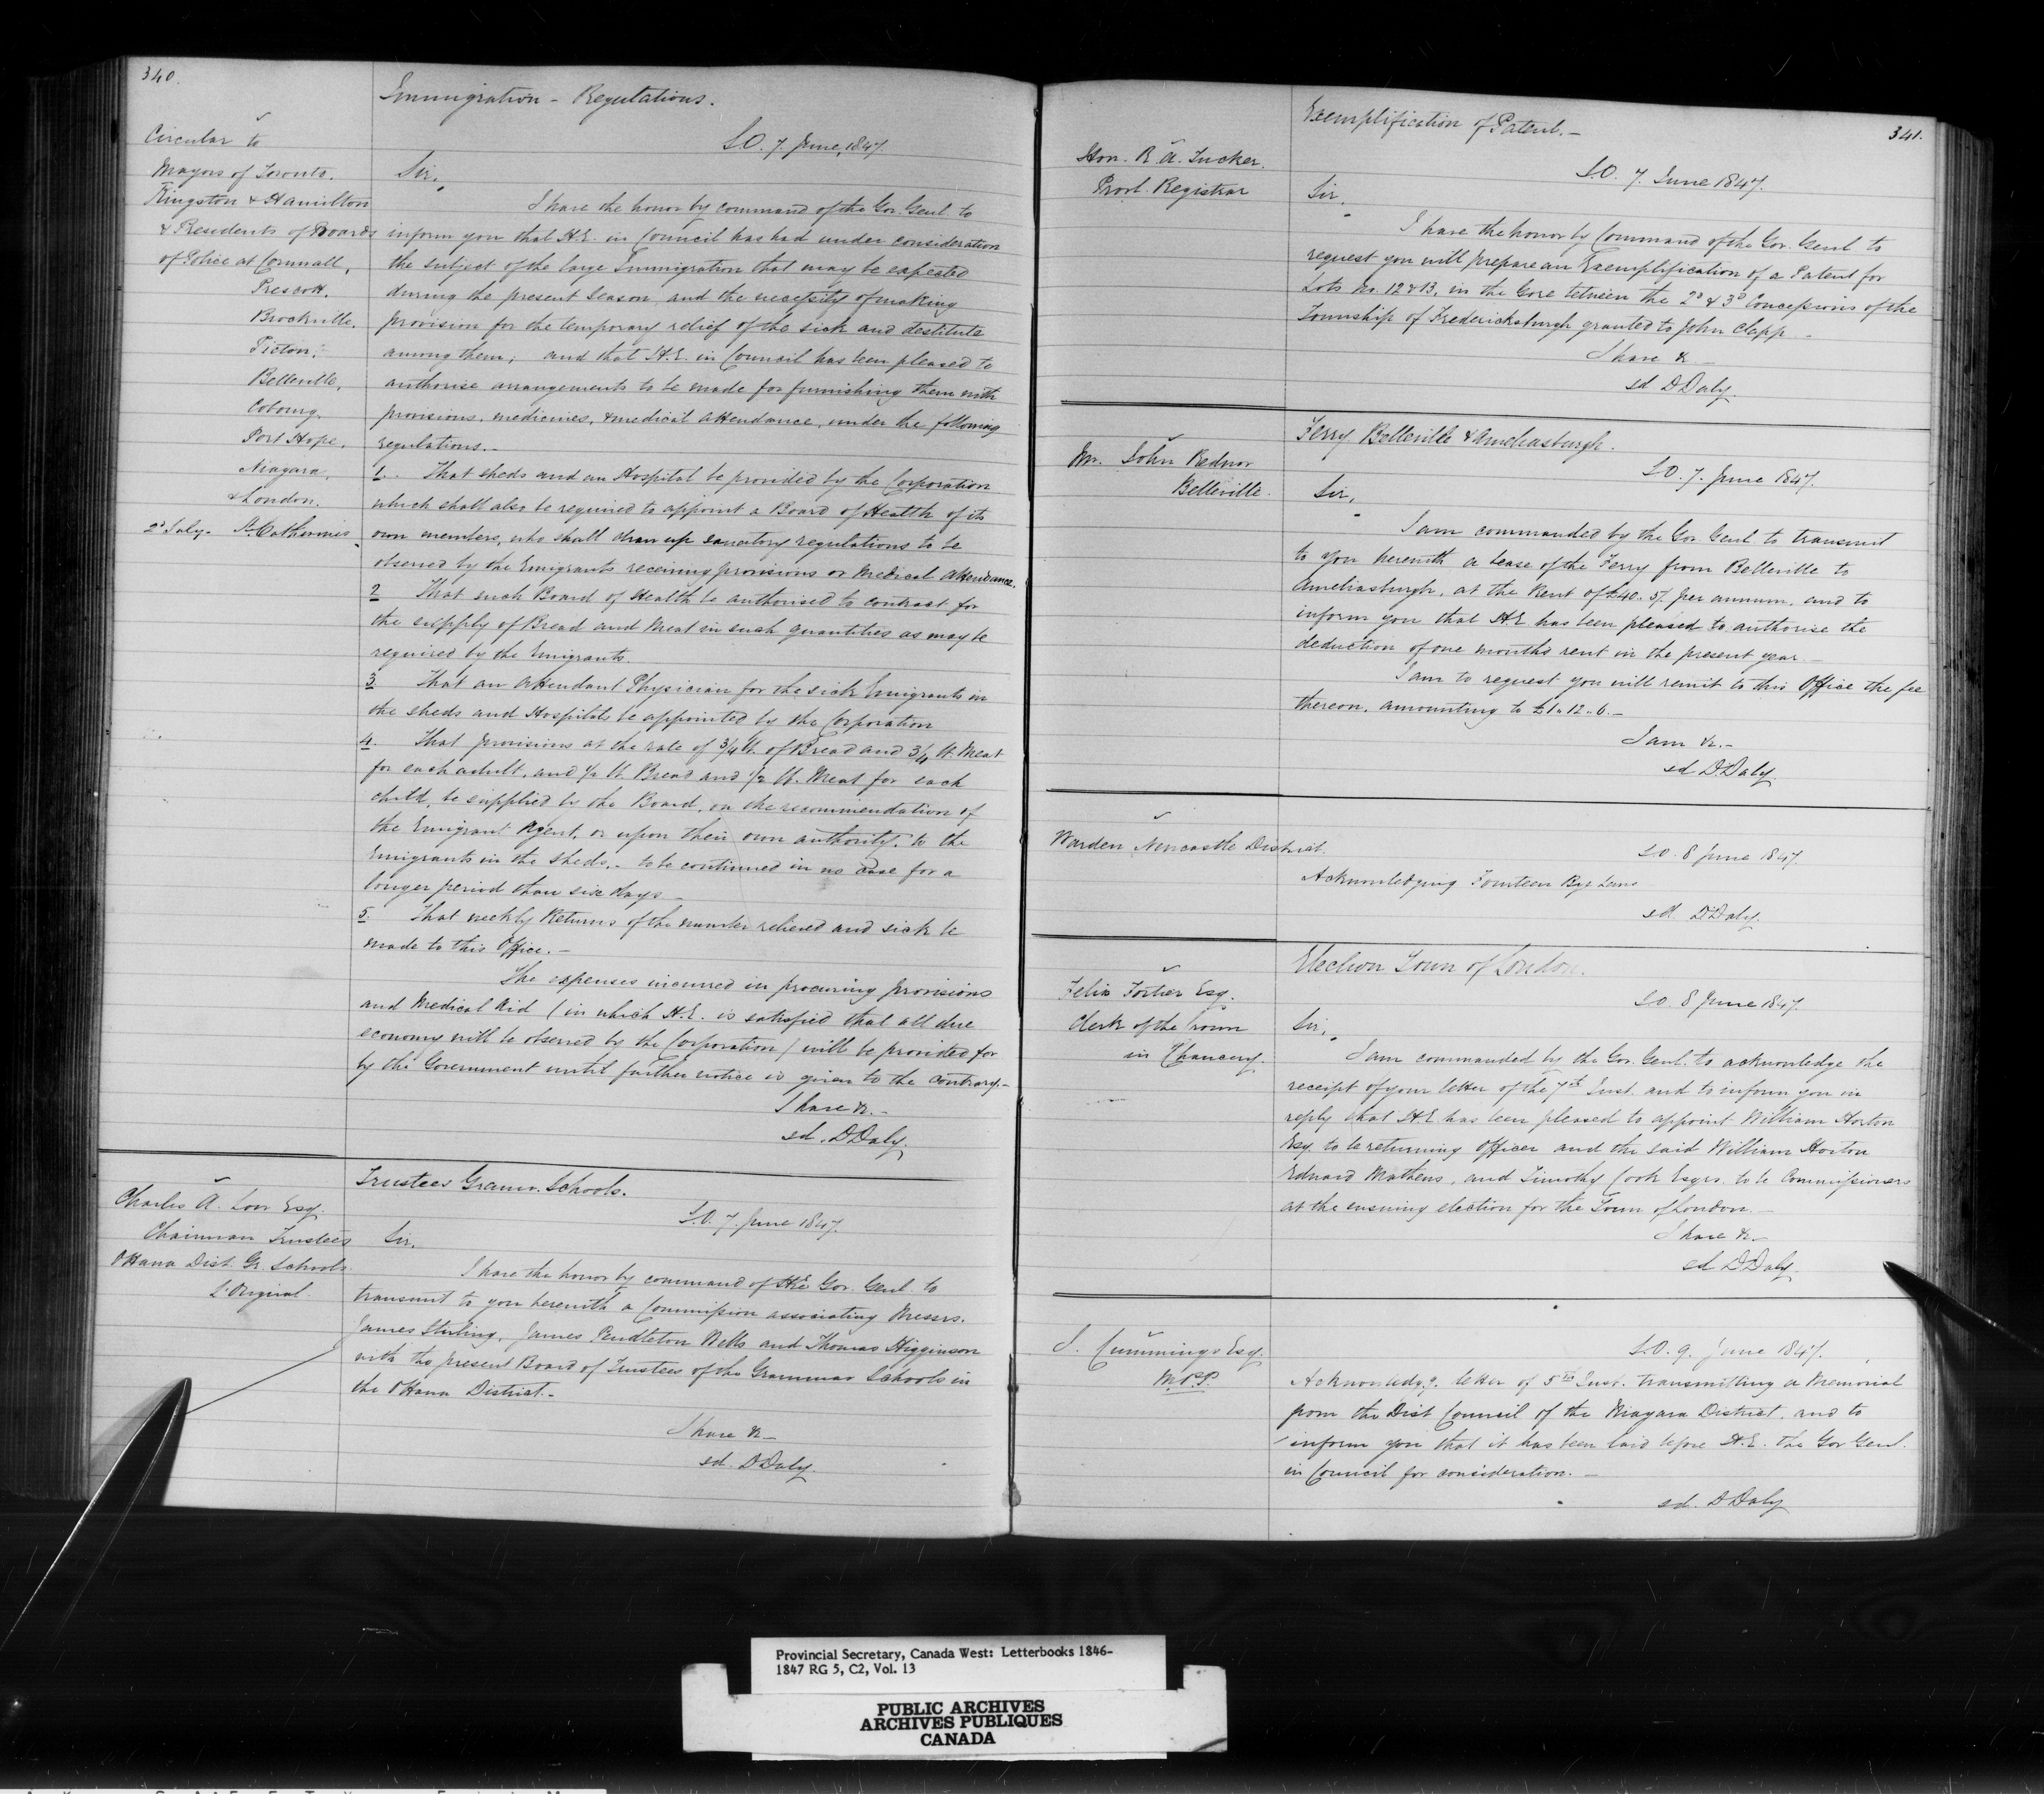 340.
Immigration - Regulations.
Circular to
Mayors of Toronto.
Kingston & Hamilton
& Presidents of Boards
of Police at Cornwall,
Prescott.
Brockville.
Picton,
Belleville,
Cobourg.
Port Hope,
Niagara,
& London.
2d July - St. Catherines
S.O. 7. June, 1847.
Sir,
I have the honor by command of the Gov. Genl. to
inform you that H.E. in Council has had under consideration
the subject of the large Immigration that may be expected
during the present Season, and the necessity of making
provision for the temporary relief of the sick and destitute
among them; and that H.E. in Council has been pleased to
authorise arrangements to be made for furnishing them with
provisions, medicines, & medical attendance, under the following
regulations.-
1. That sheds and an Hospital be provided by the Corporation
which shall also be required to appoint a Board of Health of its
own members, who shall draw up sanatory regulations to be
observed by the Emigrants receiving provisions or Medical Attendance.
2 That such Board of Health be authorised to contract for
the supply of Bread and Meat in such quantities as may be
required by the Emigrants.
3. That an attendant Physician for the sick Emigrants in
the sheds and Hospitals be appointed by the Corporation
4. That provisions at the rate of 3/4 lb. of Bread and 3/4 lb. Meat
for each adult, and 1/2 lb. Bread and 1/2 lb. Meat for each
child, be supplied by the Board, on the recommendation of
the Emigrant Agent, or upon their own authority, to the
Emigrants in the Sheds.- to be continued in no case for a
longer period than six days -
5. That weekly Returns of the number relieved and sick be
made to this Office. -
The expenses incurred in procuring provisions
and Medical Aid (in which H.E. is satisfied that all due
economy will be observed by the Corporation) will be provided for
by the Government until further notice is given to the contrary.-
I have &c. -
sd. D Daly.
Trustees Gramr. Schools.
Charles A. Low Esq.
Chairman Trustees
Ottawa Dist. Gr. Schools.
L'Orignal.
S.O. 7. June 1847.
Sir,
I have the honor by command of H.E. Gov. Genl. to
transmit to you herewith a Commission associating Messrs.
James Stirling, James Pendleton Wells and Thomas Higginson
with the present Board of Trustees of the Grammar Schools in
the Ottawa District.-
I have &c -
sd. D Daly.
341.
Exemplification of Patent. -
Hon. R. A. Tucker.
Provl. Registrar
S.O. 7. June 1847.
Sir,
I have the honor by Command of the Gov. Genl. to
request you will prepare an Exemplification of a Patent for
Lots No. 12 & 13, in the Gore between the 2d & 3d Concessions of the
Township of Fredericksburgh granted to John Clapp -
I have &c -
sd D Daly.
Ferry Belleville & Ameliasburgh.
Mr. John Rednor
Belleville.
S.O. 7. June 1847.
Sir,
I am commanded by the Gov. Genl. to transmit
to you herewith a lease of the Ferry from Belleville to
Ameliasburgh, at the Rent of £40. 5/. per annum, and to
inform you that H.E. has been pleased to authorise the
deduction of one month's rent in the present year -
I am to request you will remit to this Office the fee
thereon, amounting to £1.. 12.. 6. -
I am &c. -
sd D. Daly.
Warden Newcastle District.
S.O. 8 June 1847.
Acknowledging Fourteen Bye Laws
sd D. Daly.
Election Town of London.
Felix Fortier Esq.
Clerk of the Crown
in Chancery.
S.O. 8 June 1847.
Sir,
I am commanded by the Gov. Genl. to acknowledge the
receipt of your letter of the 7th Inst. and to inform you in
reply that H.E. has been pleased to appoint William Horton
Esq. to be returning Officer and the said William Horton
Edward Mathews, and Timothy Cook Esqrs. to be Commissioners
at the ensuing election for the Town of London. -
I have &c -
sd D Daly
J. Cummings Esq.
M.P.P.
S.O. 9. June 1847.
Acknowledg.g. letter of 5th Inst. transmitting a Memorial
from the Dist Council of the Niagara District, and to
inform you that it has been laid before H.E. the Gov Genl.
in Council for consideration. -
sd. D Daly
Provincial Secretary, Canada West: Letterbooks 1846-
1847 RG 5, C2, Vol. 13
PUBLIC ARCHIVES
ARCHIVES PUBLIQUES
CANADA